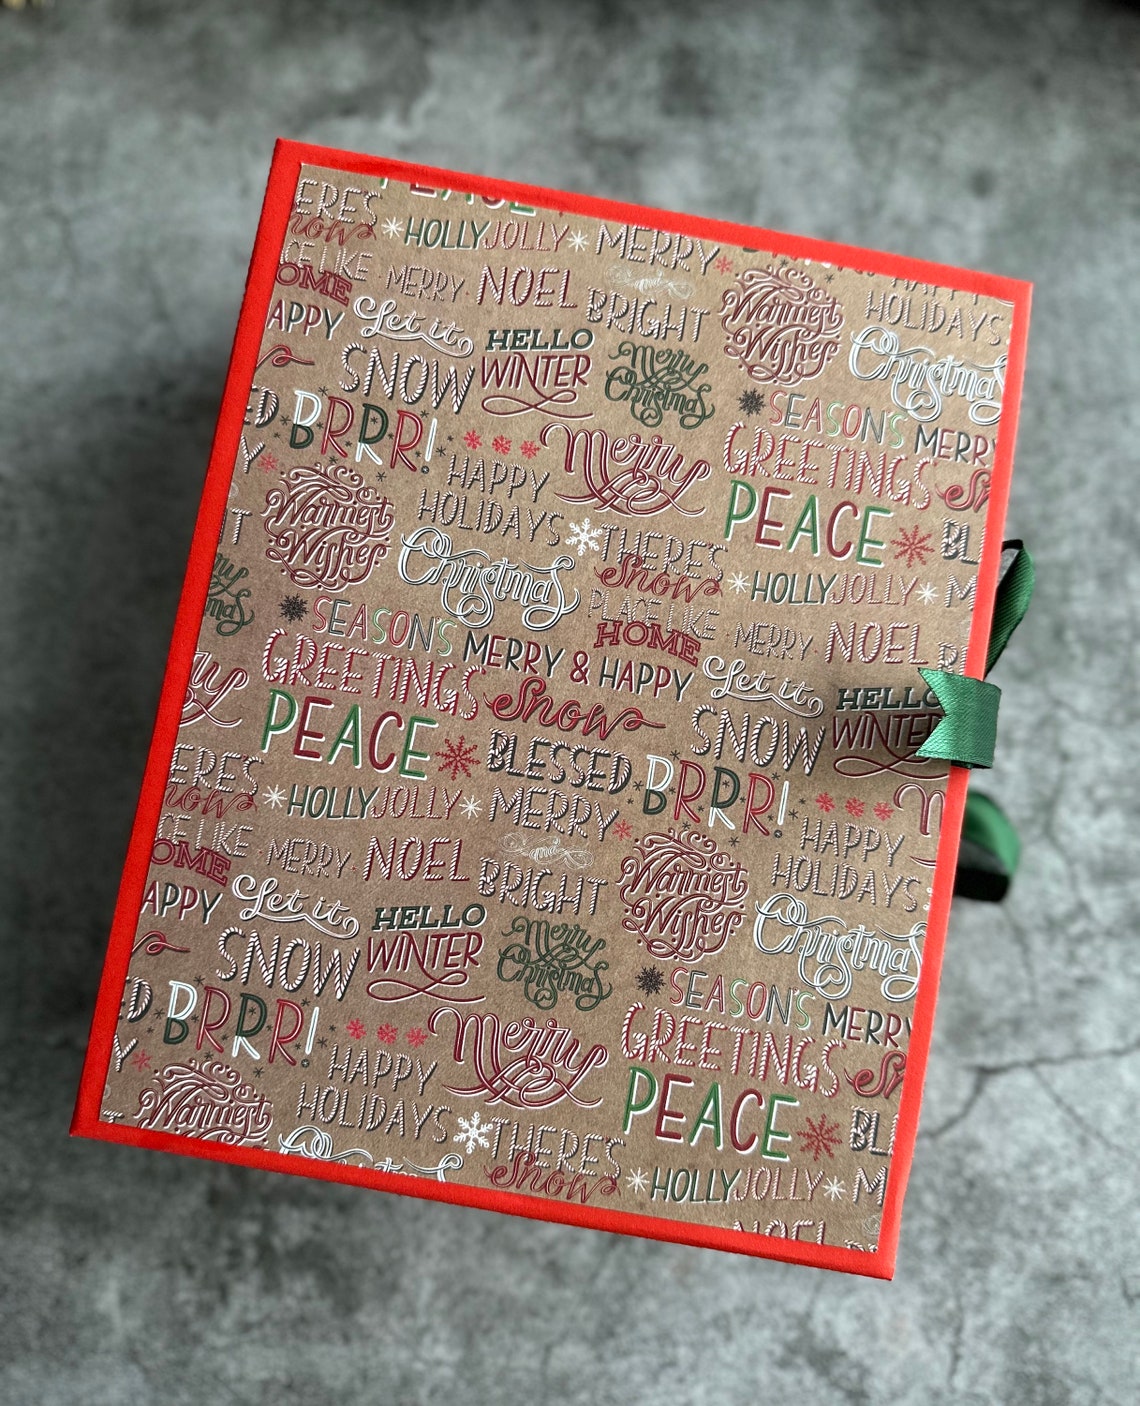 PEACE
ERE'S
Snow
HOLLY JOLLY
MERRY
CE LIKE
OME
MERRY
NOEL
BRIGHT
Warmest
Wishes
HAPPY
HOLIDAYS
APPY
Let it
SNOW
HELLO
WINTER
Merry
Christmas
Christmas
SEASON'S
GREETINGS
MERRY
ED
BRRR!
HAPPY
HOLIDAYS
Merry
PEACE
Sn
BL
Warmest
Wishes
Christmas
THERE'S
Snow
PLACE LIKE
HOME
HOLLY JOLLY
M
SEASON'S
GREETINGS
MERRY & HAPPY
MERRY
NOEL
Let it
SNOW
HELLO
WINTER
PEACE
Snow
BLESSED
BRRR!
ERE'S
Snow
HOLLY JOLLY
MERRY
HAPPY
HOLIDAYS
CE LIKE
OME
MERRY
NOEL
BRIGHT
Warmest
Wishes
Christmas
APPY
Let it
SNOW
HELLO
WINTER
Merry
Christmas
SEASON'S
GREETINGS
MERRY
ED
BRRR!
HAPPY
HOLIDAYS
Merry
PEACE
Sn
BL
Warmest
Wishes
Christmas
THERE'S
Snow
HOLLY JOLLY
M
NOEL